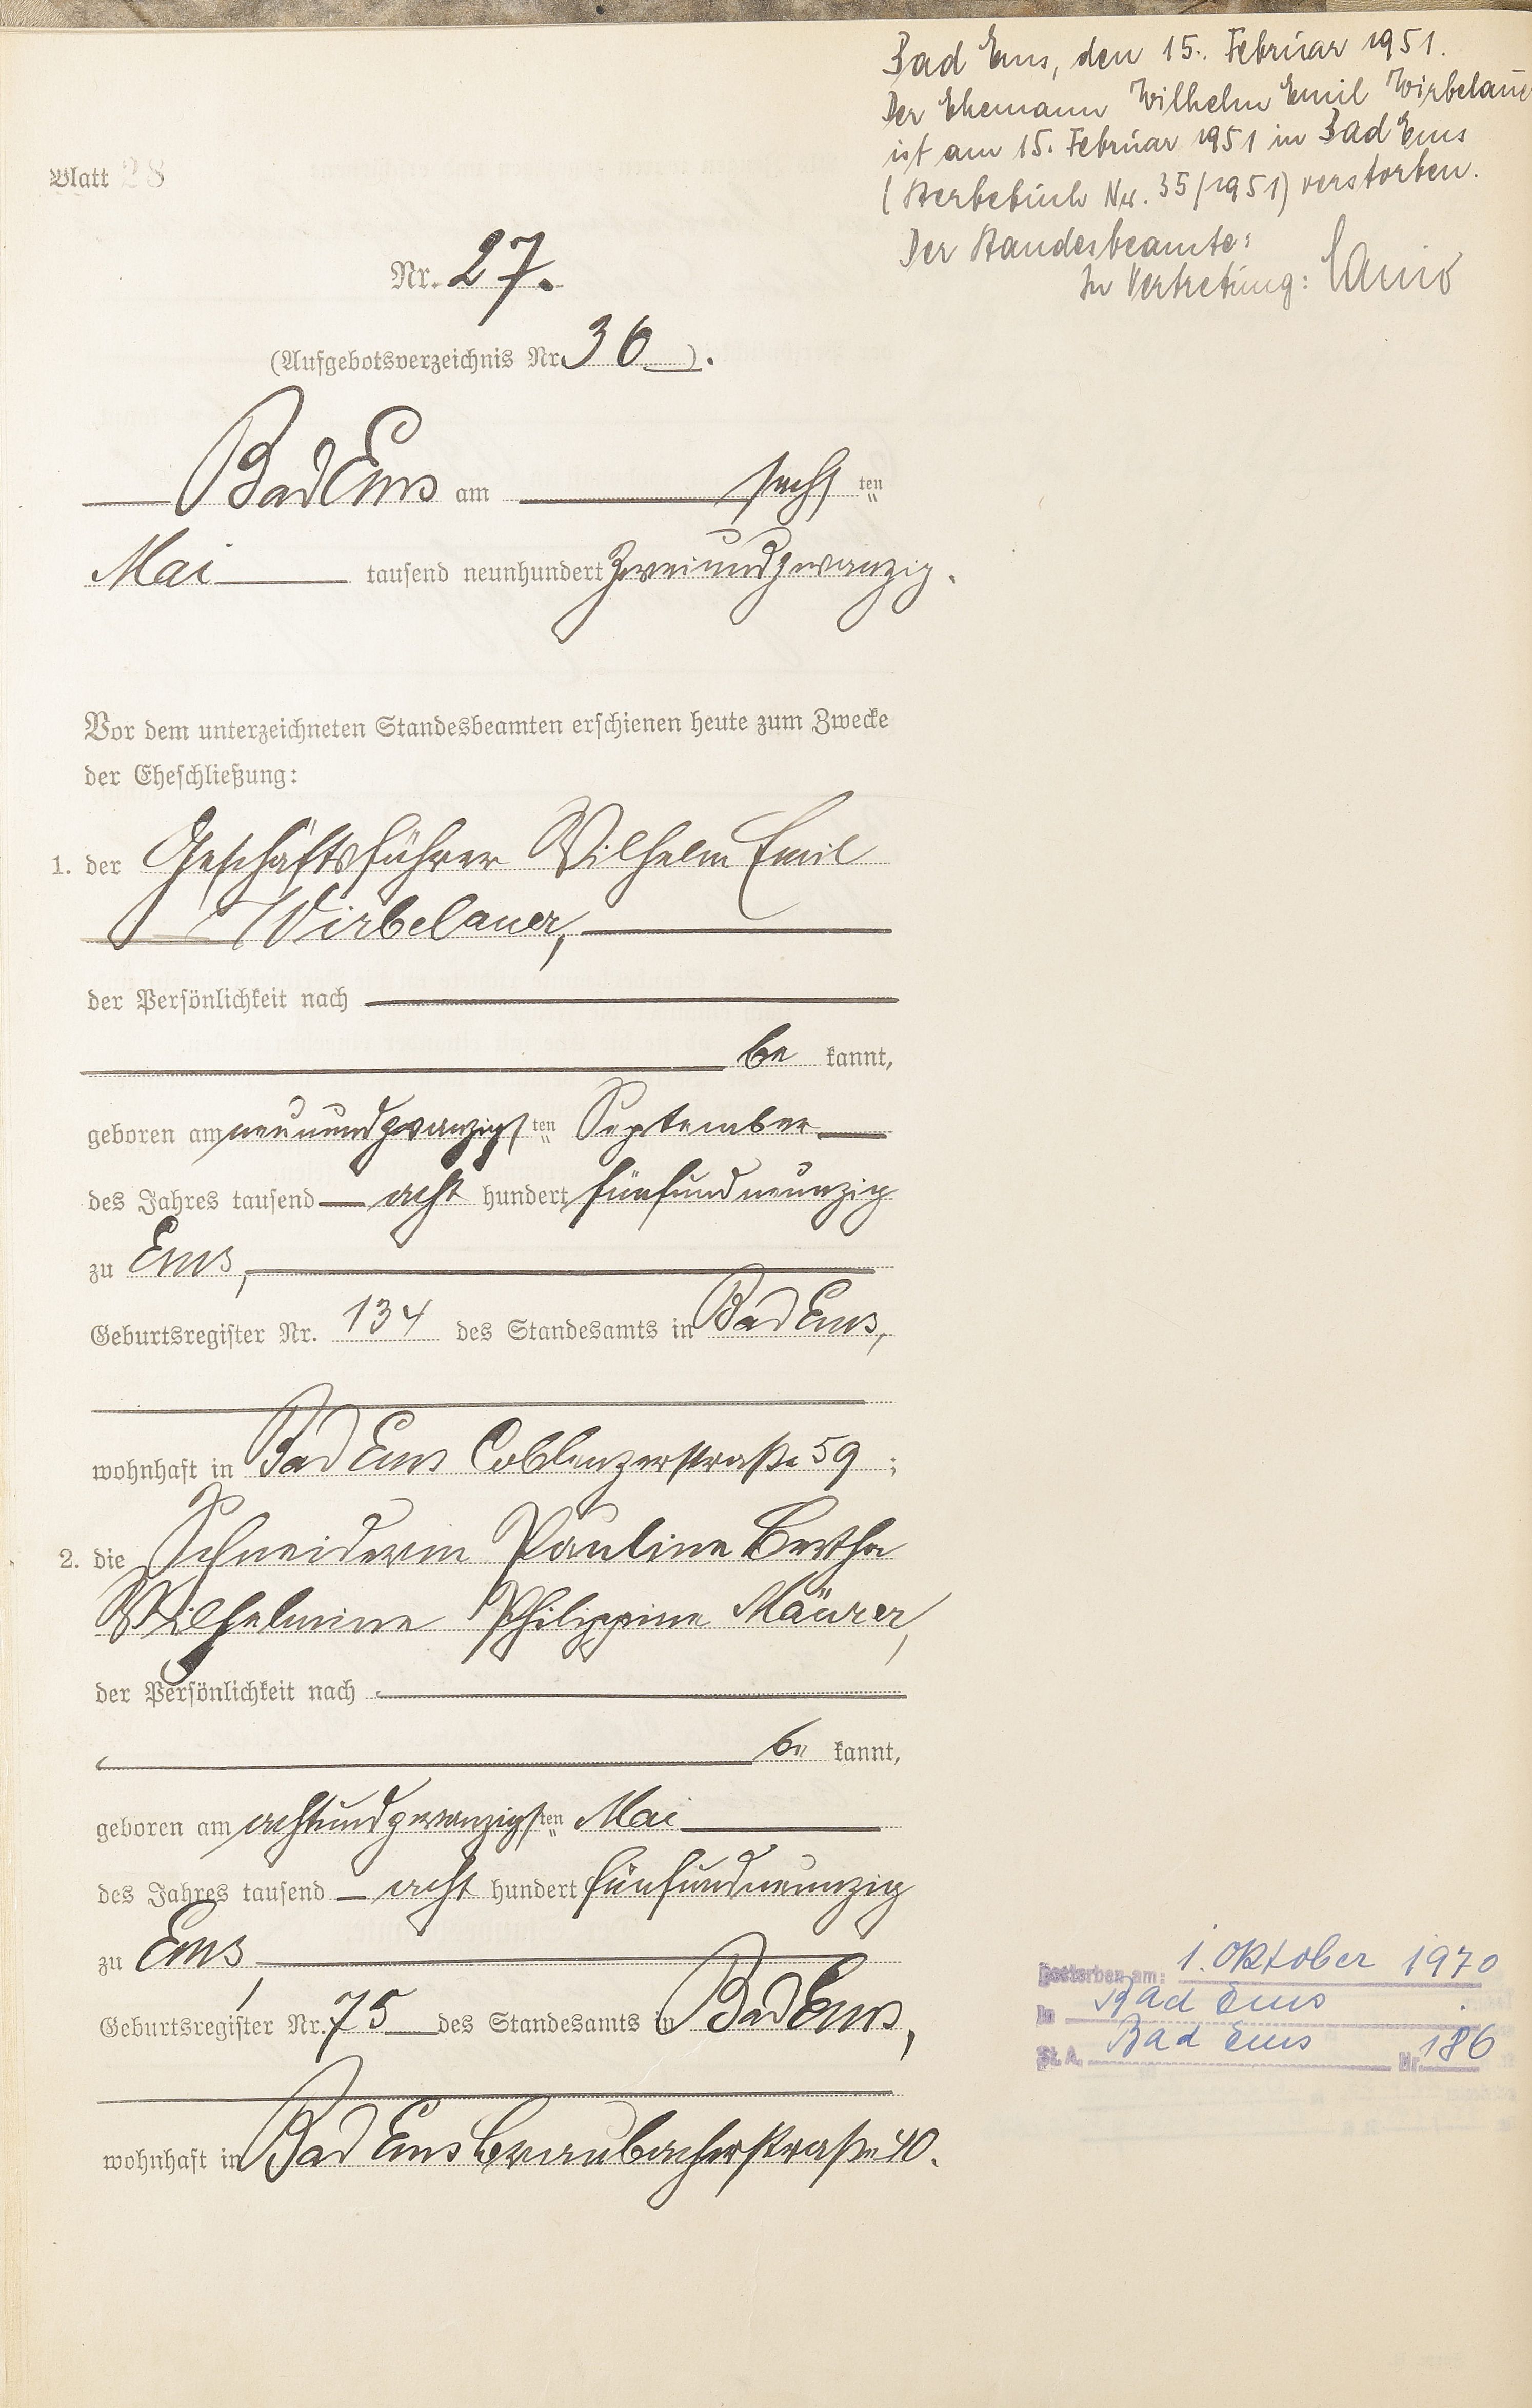 Bad Ems, den 15. Februar 1951.
Der Ehemann Wilhelm Emil Wirbelauer
ist am 15. Februar 1951 in Bad Ems
(Sterbebuch Nr. 35/1951) verstorben.
Der Standesbeamte:
In Vertretung:
Blatt 28
Nr. 27.
(Aufgebotsverzeichnis Nr. 36).
Bad Ems am sechsten
Mai tausend neunhundert zweiundzwanzig.
Vor dem unterzeichneten Standesbeamten erschienen heute zum Zwecke
der Eheschließung:
1. der Geschäftsführer Wilhelm Emil
Wirbelauer,
der Persönlichkeit nach
be kannt,
geboren am neunundzwanzigsten September
des Jahres tausend acht hundert fünfundneunzig
zu Ems,
Geburtsregister Nr. 134 des Standesamts in Bad Ems,
wohnhaft in Bad Ems Coblenzerstraße 59;
2. die Schneiderin Pauline Bertha
Wilhelmine Philippine Mäurer,
der Persönlichkeit nach
be kannt,
geboren am achtundzwanzigsten Mai
des Jahres tausend acht hundert fünfundneunzig
zu Ems,
Geburtsregister Nr. 75 des Standesamts in Bad Ems,
wohnhaft in Bad Ems Braubacherstraße 40.
Gestorben am: 1. Oktober 1970
in Bad Ems
St. A. Bad Ems Nr. 186